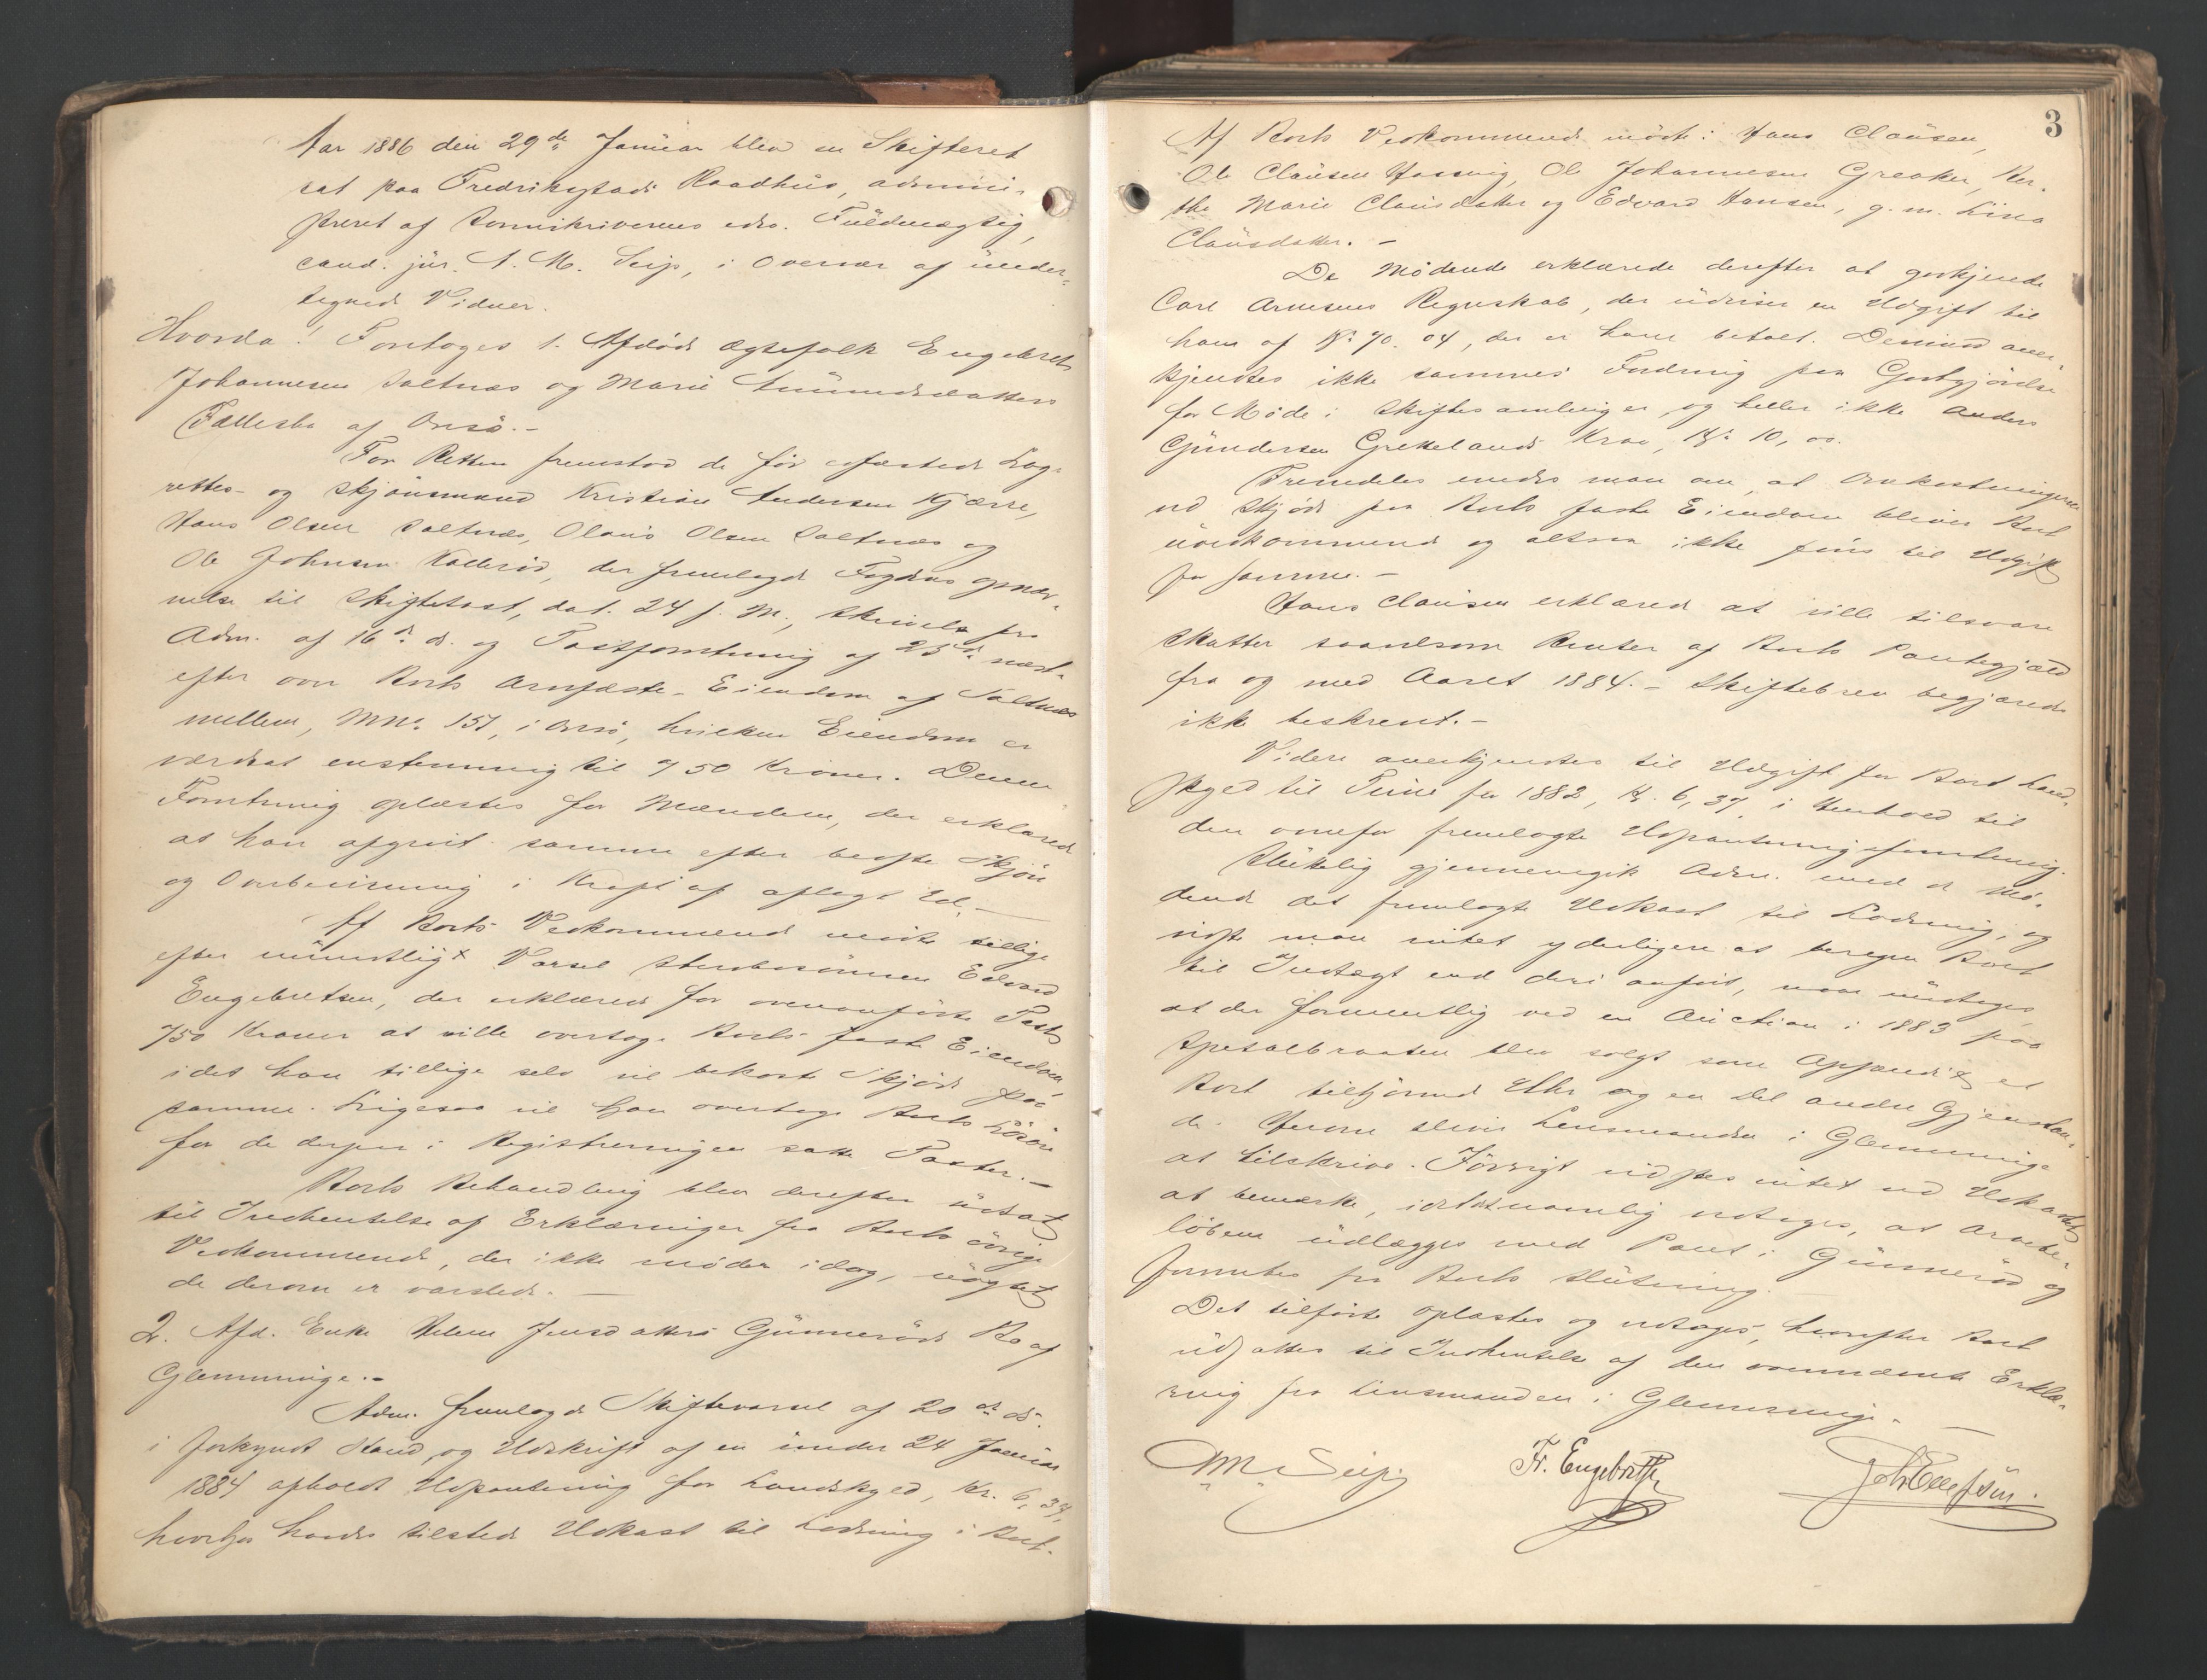 Aar 1886 den 29de Januar blev en Skifteret
sat paa Fredriksstads Raadhus, admini-
streret af Sorenskriverens edsv. Fuldmægtig,
cand. jur. A. M. Seip, i Overvær af under-
tegnede Vidner.
Hvorda! Foretoges 1. Afdøde Ægtefolk Engebret
Johannesen Saltnæs og Marie Amundsdatters
Fællesbo af Onsø.-
For Retten fremstod de før edfæstede Lag-
rettes- og Skjønsmænd Kristian Andersen Kjærre,
Hans Olsen Saltnæs, Olaus Olsen Saltnæs og
Ole Johnsen, der fremlagde Fogdens Opnæv-
nelse til Skiftetaxt, dat. 24 f. M., Skrivelse fra
Adm. af 16de ds. og Taxtforretning af 25de næst-
efter over Boets Arvefæste-Eiendom af Saltnæs
mellem, MNo. 151, i Onsø, hvilken Eiendom er
værdsat enstemmig til 750 Kroner. Denne
Forretning oplæstes for Mændene, der erklærede
at have afgivet samme efter bedste Skjøn
og Overbevisning i Kraft af aflagt Ed.-
Af Boets Vedkommende mødte tillige
efter mundtligt Varsel Sterbosønnen Edvard
Engebretsen, der erklærede for ovenanførte Taxt
750 Kroner at ville overtage Boets faste Eiendom
idet han tillige selv vil bekoste Skjøde paa
samme. Ligesaa vil han overtage Boets Løsøre
for de derpaa i Registreringen satte Taxter.-
Boets Behandling blev derefter udsat
til Indhentelse af Erklæringer fra Boets øvrige
Vedkommende, der ikke møder idag, uagtet
de derom er varslede.-
2. Afd. Enke Helene Jensdatters Gunnerøds Bo af
Glemminge.-
Adm. fremlagde Skiftevarsel af 20de ds.
i forkyndt Stand, og Udskrift af en under 24 Januar
1884 afholdt Udpantning for Landskyld, Kr. 6,37,
hvorhos havdes tilstede Udkast til Lodning i Boet.
3
Af Boets Vedkommende mødte: Hans Clausen,
Ole Clausen, Ole Johannesen Greaker, Ber-
the Marie Clausdatter og Edvard Hansen, g. m. Lina
Clausdatter.-
De Mødende erklærede derefter at godkjende
Carl Arnesens Regnskab, der udviser en Udgift til
ham af Kr. 70.04, der er ham betalt. Derimod aner-
kjendtes ikke sammes Fordring paa Godtgjørelse
for Møde i Skiftesamlinger og heller ikke Anders
Gundersen Grekelands Krav, Kr. 10,00.
Fremdeles enedes man om, at Omkostningerne
ved Skjøde paa Boets faste Eiendom bliver Boet
uvedkommende og altsaa ikke føres til Udgift
for samme.-
Hans Clausen erklærede at ville tilsvare
Skatter saavelsom Renter af Boets Pantegjæld
fra og med Aaret 1884.- Skiftebrev begjæredes
ikke beskrevet.-
Videre anerkjendtes til Udgift for Boet Land-
skyld til Tune for 1882, Kr. 6,37, i Henhold til
den ovenfor fremlagte Udpantningsforretning.
Sluttelig gjennemgik Adm. med de Mø-
dende det fremlagte Udkast til Lodning, og
vidste man intet yderligere at beregne Boet
til Indtægt end deri anført, naar undtages
at der formentlig ved en Auction i 1883 paa
Spetalbraaten blev solgt som Appendix et
Boet tilhørende Uhr og en Del andre Gjenstan-
de. Herom bliver Lensmanden i Glemminge
at tilskrive. Forøvrigt vidstes intet ved Udkastet
at bemærke, idet nemlig vedtages, at Arvebe-
løbene udlægges med Pant i Gunnerød og
forrentes fra Boets Slutning.
Det tilførte oplæstes og vedtages, hvorefter Boet
udsattes til Indhentelse af den ovennævnte Erklæ-
ring fra Lensmanden i Glemminge.-
AM Seip
Fr. Engebretsen
Joh Ellefsen.